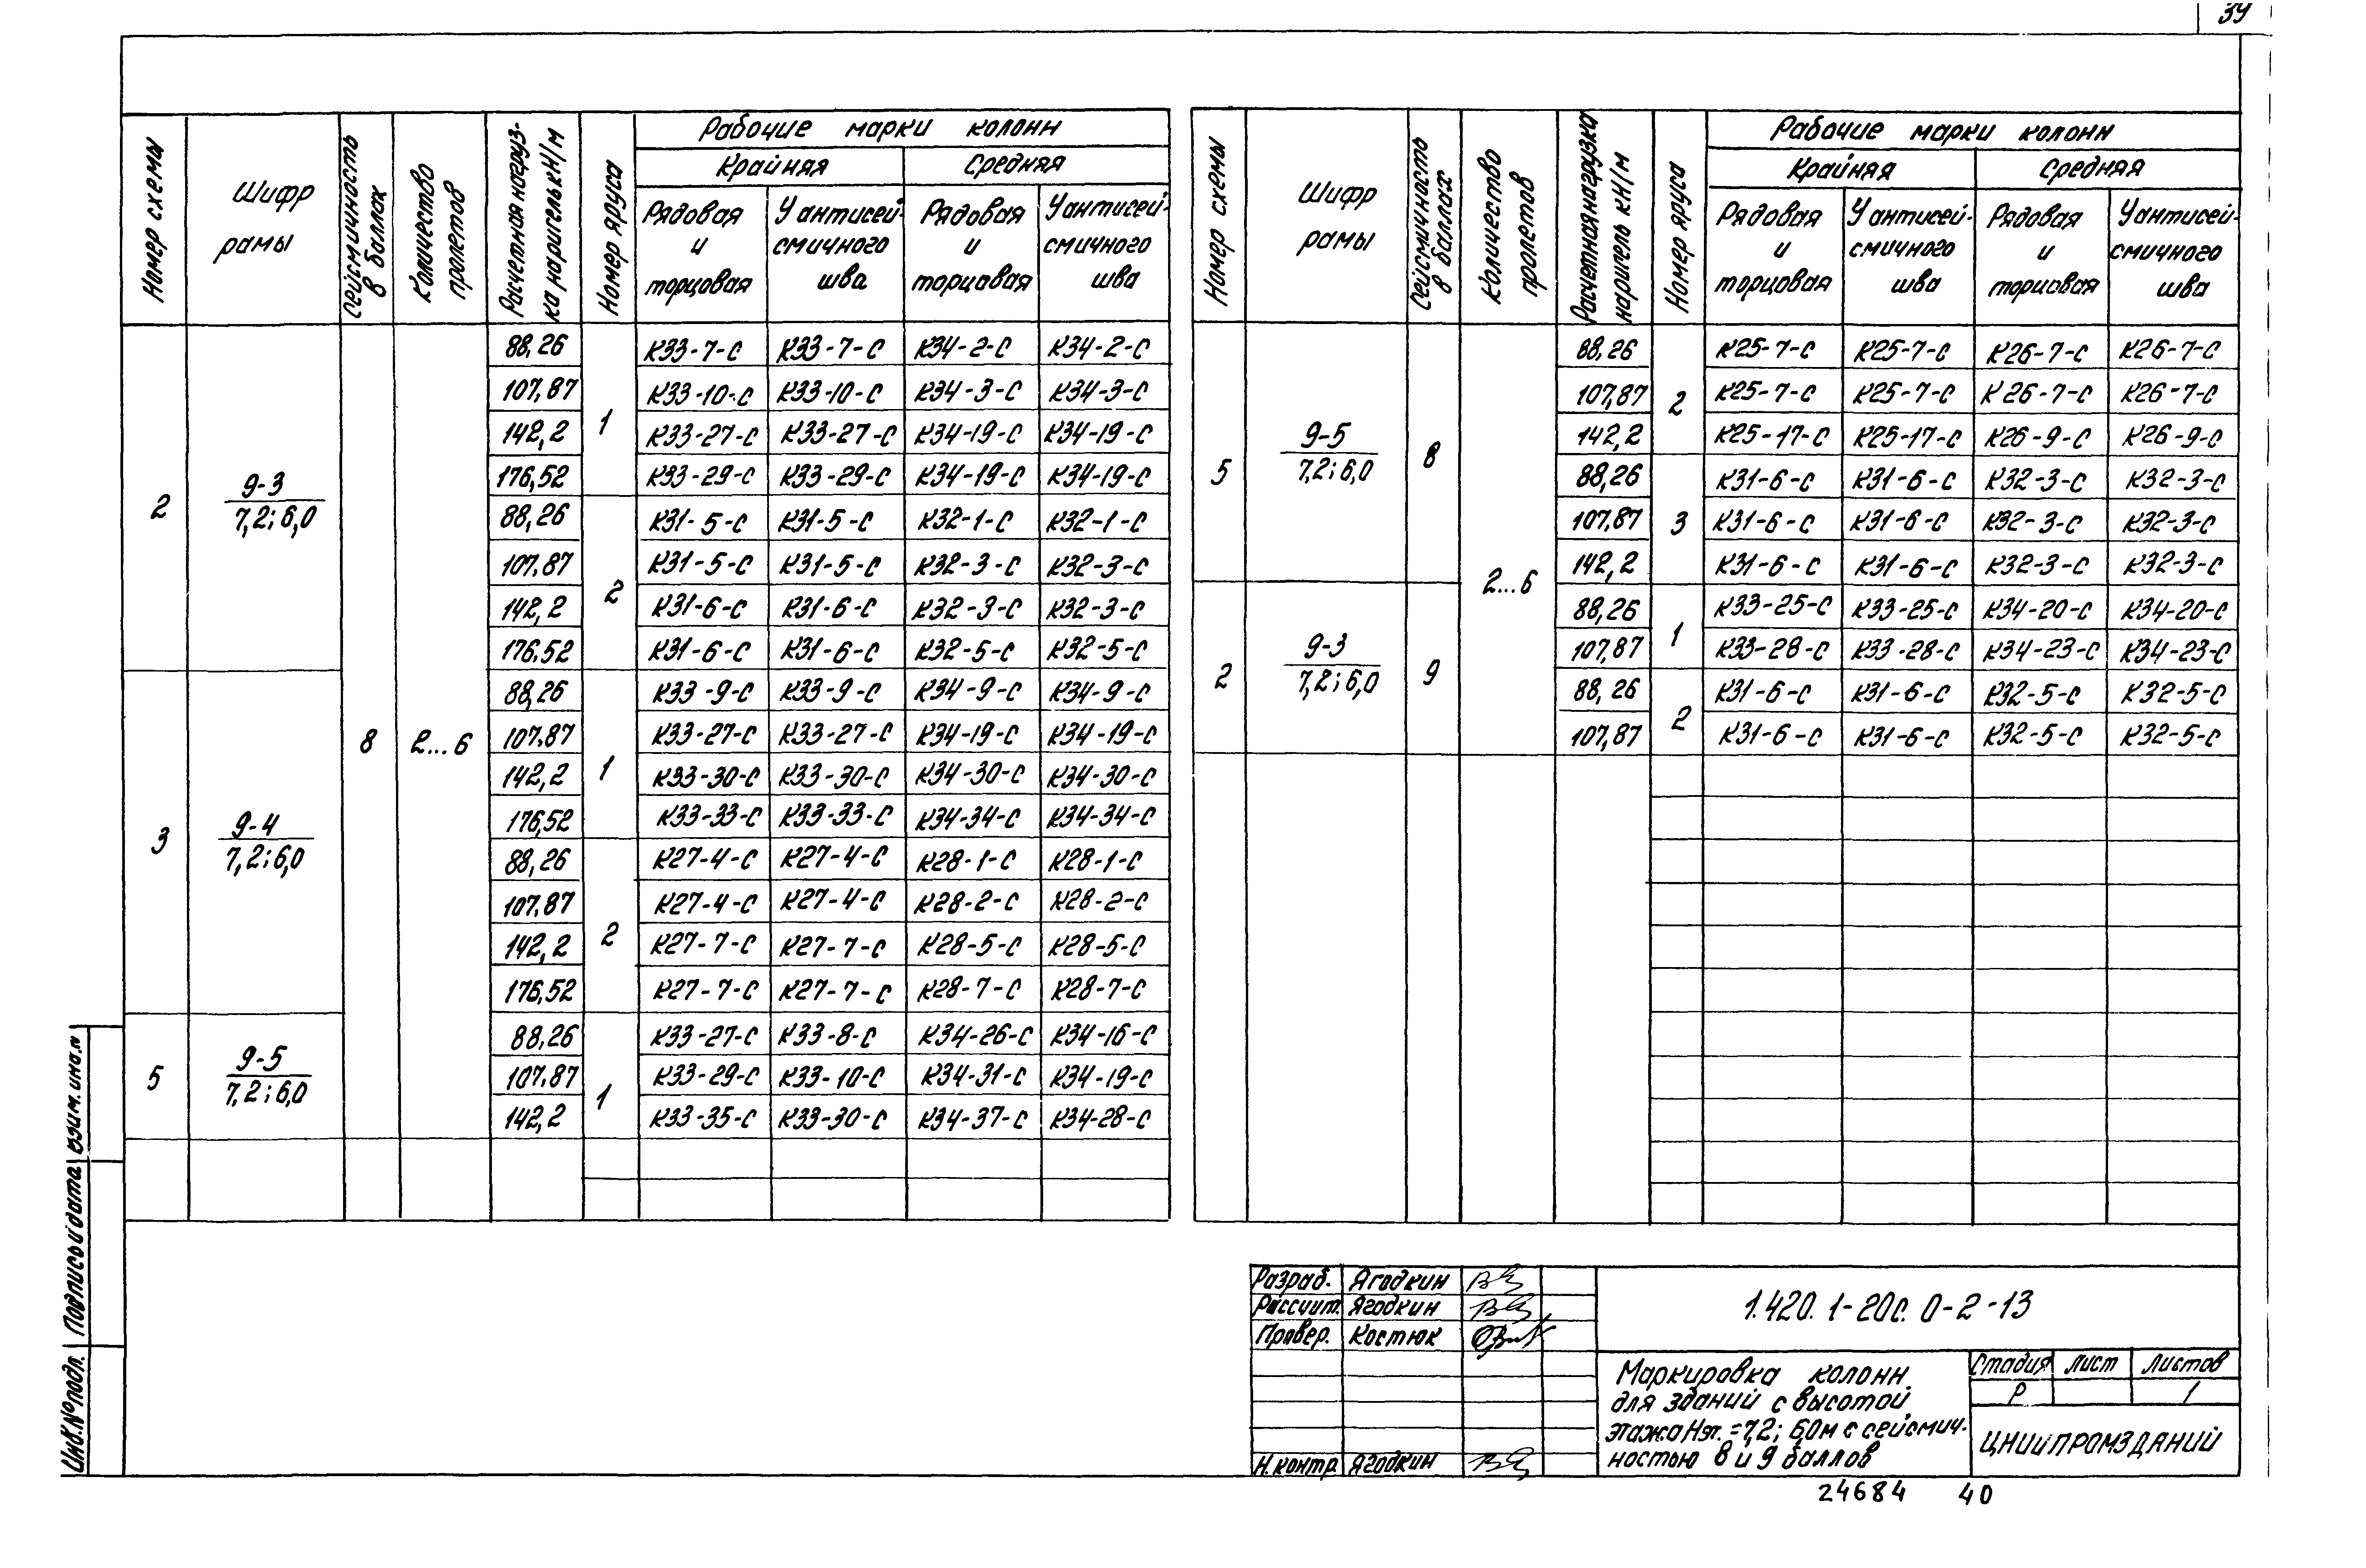 39
Номер схемы
Шифр рамы
Сейсмичность в баллах
Количество пролетов
Расчетная нагрузка на ригель кН/м
Номер яруса
Рабочие марки колонн
Крайняя Средняя
Рядовая и торцовая У антисейсмичного шва Рядовая и торцовая У антисейсмичного шва
2 9-3 7,2; 6,0 8 2...6
1
88,26 К33-7-С К33-7-С К34-2-С К34-2-С
107,87 К33-10-С К33-10-С К34-3-С К34-3-С
142,2 К33-27-С К33-27-С К34-19-С К34-19-С
176,52 К33-29-С К33-29-С К34-19-С К34-19-С
2
88,26 К31-5-С К31-5-С К32-1-С К32-1-С
107,87 К31-5-С К31-5-С К32-3-С К32-3-С
142,2 К31-6-С К31-6-С К32-3-С К32-3-С
176,52 К31-6-С К31-6-С К32-5-С К32-5-С
3 9-4 7,2; 6,0
1
88,26 К33-9-С К33-9-С К34-9-С К34-9-С
107,87 К33-27-С К33-27-С К34-19-С К34-19-С
142,2 К33-30-С К33-30-С К34-30-С К34-30-С
176,52 К33-33-С К33-33-С К34-34-С К34-34-С
2
88,26 К27-4-С К27-4-С К28-1-С К28-1-С
107,87 К27-4-С К27-4-С К28-2-С К28-2-С
142,2 К27-7-С К27-7-С К28-5-С К28-5-С
176,52 К27-7-С К27-7-С К28-7-С К28-7-С
5 9-5 7,2; 6,0
1
88,26 К33-27-С К33-8-С К34-26-С К34-16-С
107,87 К33-29-С К33-10-С К34-31-С К34-19-С
142,2 К33-35-С К33-30-С К34-37-С К34-28-С
Номер схемы
Шифр рамы
Сейсмичность в баллах
Количество пролетов
Расчетная нагрузка на ригель кН/м
Номер яруса
Рабочие марки колонн
Крайняя Средняя
Рядовая и торцовая У антисейсмичного шва Рядовая и торцовая У антисейсмичного шва
5 9-5 7,2; 6,0 8 2...6
2
88,26 К25-7-С К25-7-С К26-7-С К26-7-С
107,87 К25-7-С К25-7-С К26-7-С К26-7-С
142,2 К25-17-С К25-17-С К26-9-С К26-9-С
3
88,26 К31-6-С К31-6-С К32-3-С К32-3-С
107,87 К31-6-С К31-6-С К32-3-С К32-3-С
142,2 К31-6-С К31-6-С К32-3-С К32-3-С
2 9-3 7,2; 6,0 9
1
88,26 К33-25-С К33-25-С К34-20-С К34-20-С
107,87 К33-28-С К33-28-С К34-23-С К34-23-С
2
88,26 К31-6-С К31-6-С К32-5-С К32-5-С
107,87 К31-6-С К31-6-С К32-5-С К32-5-С
Инв.№подл. Подпись и дата Взим. инв.№
Разраб. Ягодкин
Рассчит. Ягодкин
Провер. Костюк
Н.контр Ягодкин
1.420.1-20с. 0-2-13
Маркировка колонн
для зданий с высотой
этажа Нэт.=7,2; 6,0м с сейсмич-
ностью 8 и 9 баллов
Стадия Лист Листов
Р 1
ЦНИИПРОМЗДАНИЙ
24684 40